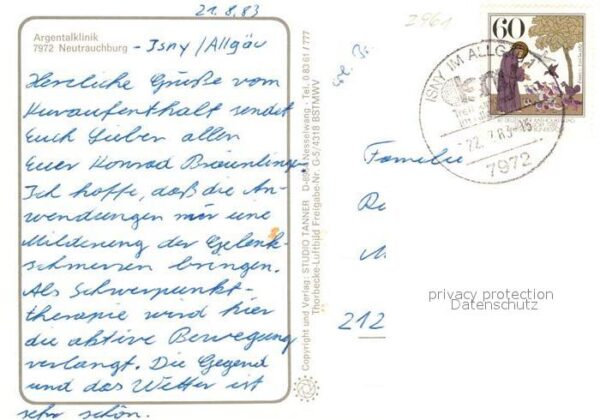 21.8.83
Argentalklinik
7972 Neutrauchburg - Isny/Allgäu
Herzliche Grüße vom
Kuraufenthalt sendet
Euch Lieben allen
Euer Konrad Bräunling
Ich hoffe, daß die An-
wendungen mir eine
Milderung der Gelenk-
schmerzen bringen.
Als Schwerpunkt-
therapie wird hier
die aktive Bewegung
verlangt. Die Gegend
und das Wetter ist
sehr schön.
Copyright und Verlag: STUDIO TANNER D-8964 Nesselwang - Tel. 0 83 61 / 777
Thorbecke-Luftbild Freigabe-Nr. G-5/4318 BSTMWV
2961
60
ISNY IM ALLG
22.-7.83-15
7972
Familie
212
privacy protection
Datenschutz